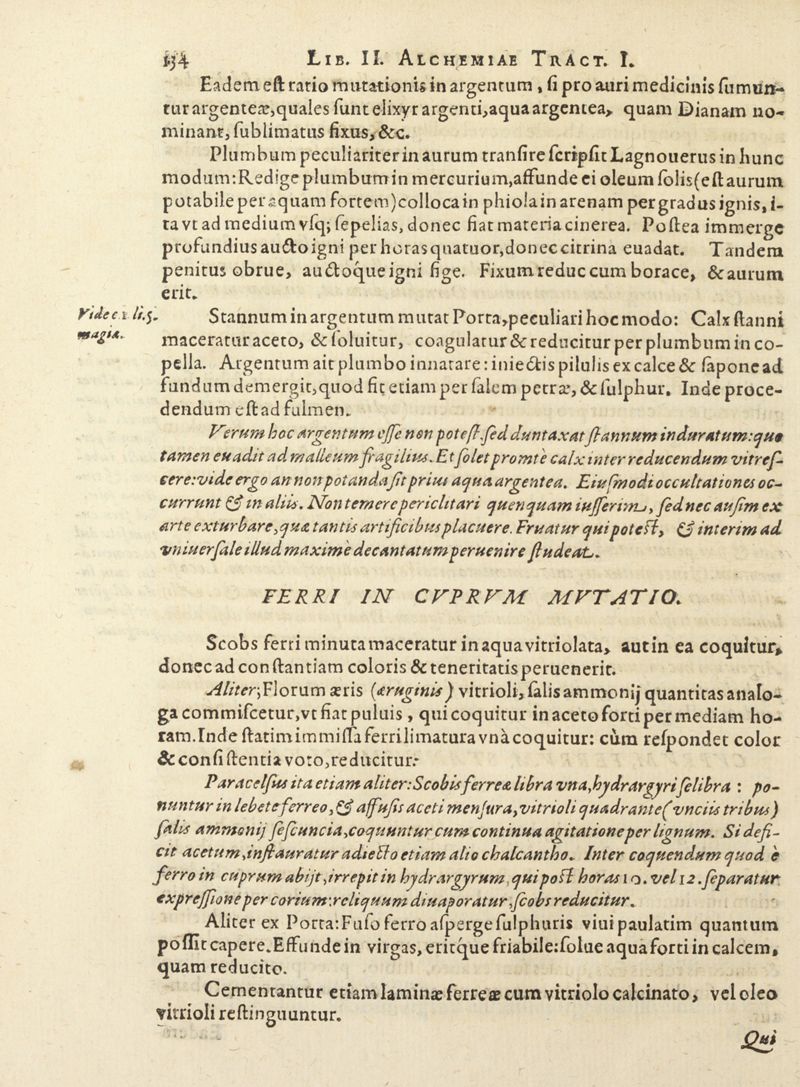 134 LIB. II. ALCHEMIAE TRACT. I.
Eadem eſt ratio mutationis in argentum, ſi pro auri medicinis ſumun-
tur argenteæ, quales ſunt elixyr argenti, aqua argentea, quam Dianam no-
minant, ſublimatus fixus, &c.
Plumbum peculiariter in aurum tranſire ſcripſit Lagnouerus in hunc
modum: Redige plumbum in mercurium, affunde ei oleum ſolis (eſt aurum
potabile per aquam fortem) colloca in phiola in arenam per gradus ignis, i-
ta vt ad medium vſq; ſepelias, donec fiat materia cinerea. Poſtea immerge
profundius aucto igni per horas quatuor, donec citrina euadat. Tandem
penitus obrue, auctoque igni fige. Fixum reduc cum borace, & aurum
erit.
Vide ei li. 5.
magiæ.
Stannum in argentum mutat Porta, peculiari hoc modo: Calx ſtanni
maceratur aceto, & ſoluitur, coagulatur & reducitur per plumbum in co-
pella. Argentum ait plumbo innatare: iniectis pilulis ex calce & ſapone ad
fundum demergit, quod fit etiam per ſalem petræ, & ſulphur. Inde proce-
dendum eſt ad fulmen.
Verum hoc argentum eſſe non poteſt, ſed duntaxat ſtannum induratum: quo
tamen euadit ad malleum fragilius. Et ſolet promte calx inter reducendum vitreſ-
cere: vide ergo an non potanda ſit prius aqua argentea. Eiuſmodi occultationes oc-
currunt & in aliis. Non temere periclitari quenquam iuſſerim, ſed nec auſim ex
arte exturbare, quæ tantis artificibus placuere. Fruatur qui poteſt, & interim ad
vniuerſale illud maxime decantatum peruenire ſtudeat.
FERRI IN CVPRVM MVTATIO.
Scobs ferri minuta maceratur in aqua vitriolata, aut in ea coquitur,
donec ad conſtantiam coloris & teneritatis peruenerit.
Aliter; Florum æris (æruginis) vitrioli, ſalis ammonij quantitas analo-
ga commiſcetur, vt fiat puluis, qui coquitur in aceto forti per mediam ho-
ram. Inde ſtatim immiſſa ferri limatura vnà coquitur: cùm reſpondet color
& conſiſtentia voto, reducitur:
Paracelſus ita etiam aliter: Scobis ferreæ libra vna, hydrargyri ſelibra: po-
nuntur in lebete ferreo, & affuſis aceti menſura, vitrioli quadrante (vnciis tribus)
ſalis ammonij ſeſcuncia, coquuntur cum continua agitatione per lignum. Si defi-
cit acetum, inſtauratur adiecto etiam alio chalcantho. Inter coquendum quod è
ferro in cuprum abijt, irrepit in hydrargyrum, qui poſt horas 10. vel 12. ſeparatur
expreſſione per corium: reliquum diuaporatur, ſcobs reducitur.
Aliter ex Porta: Fuſo ferro aſperge ſulphuris viui paulatim quantum
poſſit capere. Effunde in virgas, eritque friabile: ſolue aqua forti in calcem,
quam reducito.
Cementantur etiam laminæ ferreæ cum vitriolo calcinato, vel oleo
vitrioli reſtinguuntur.
Qui